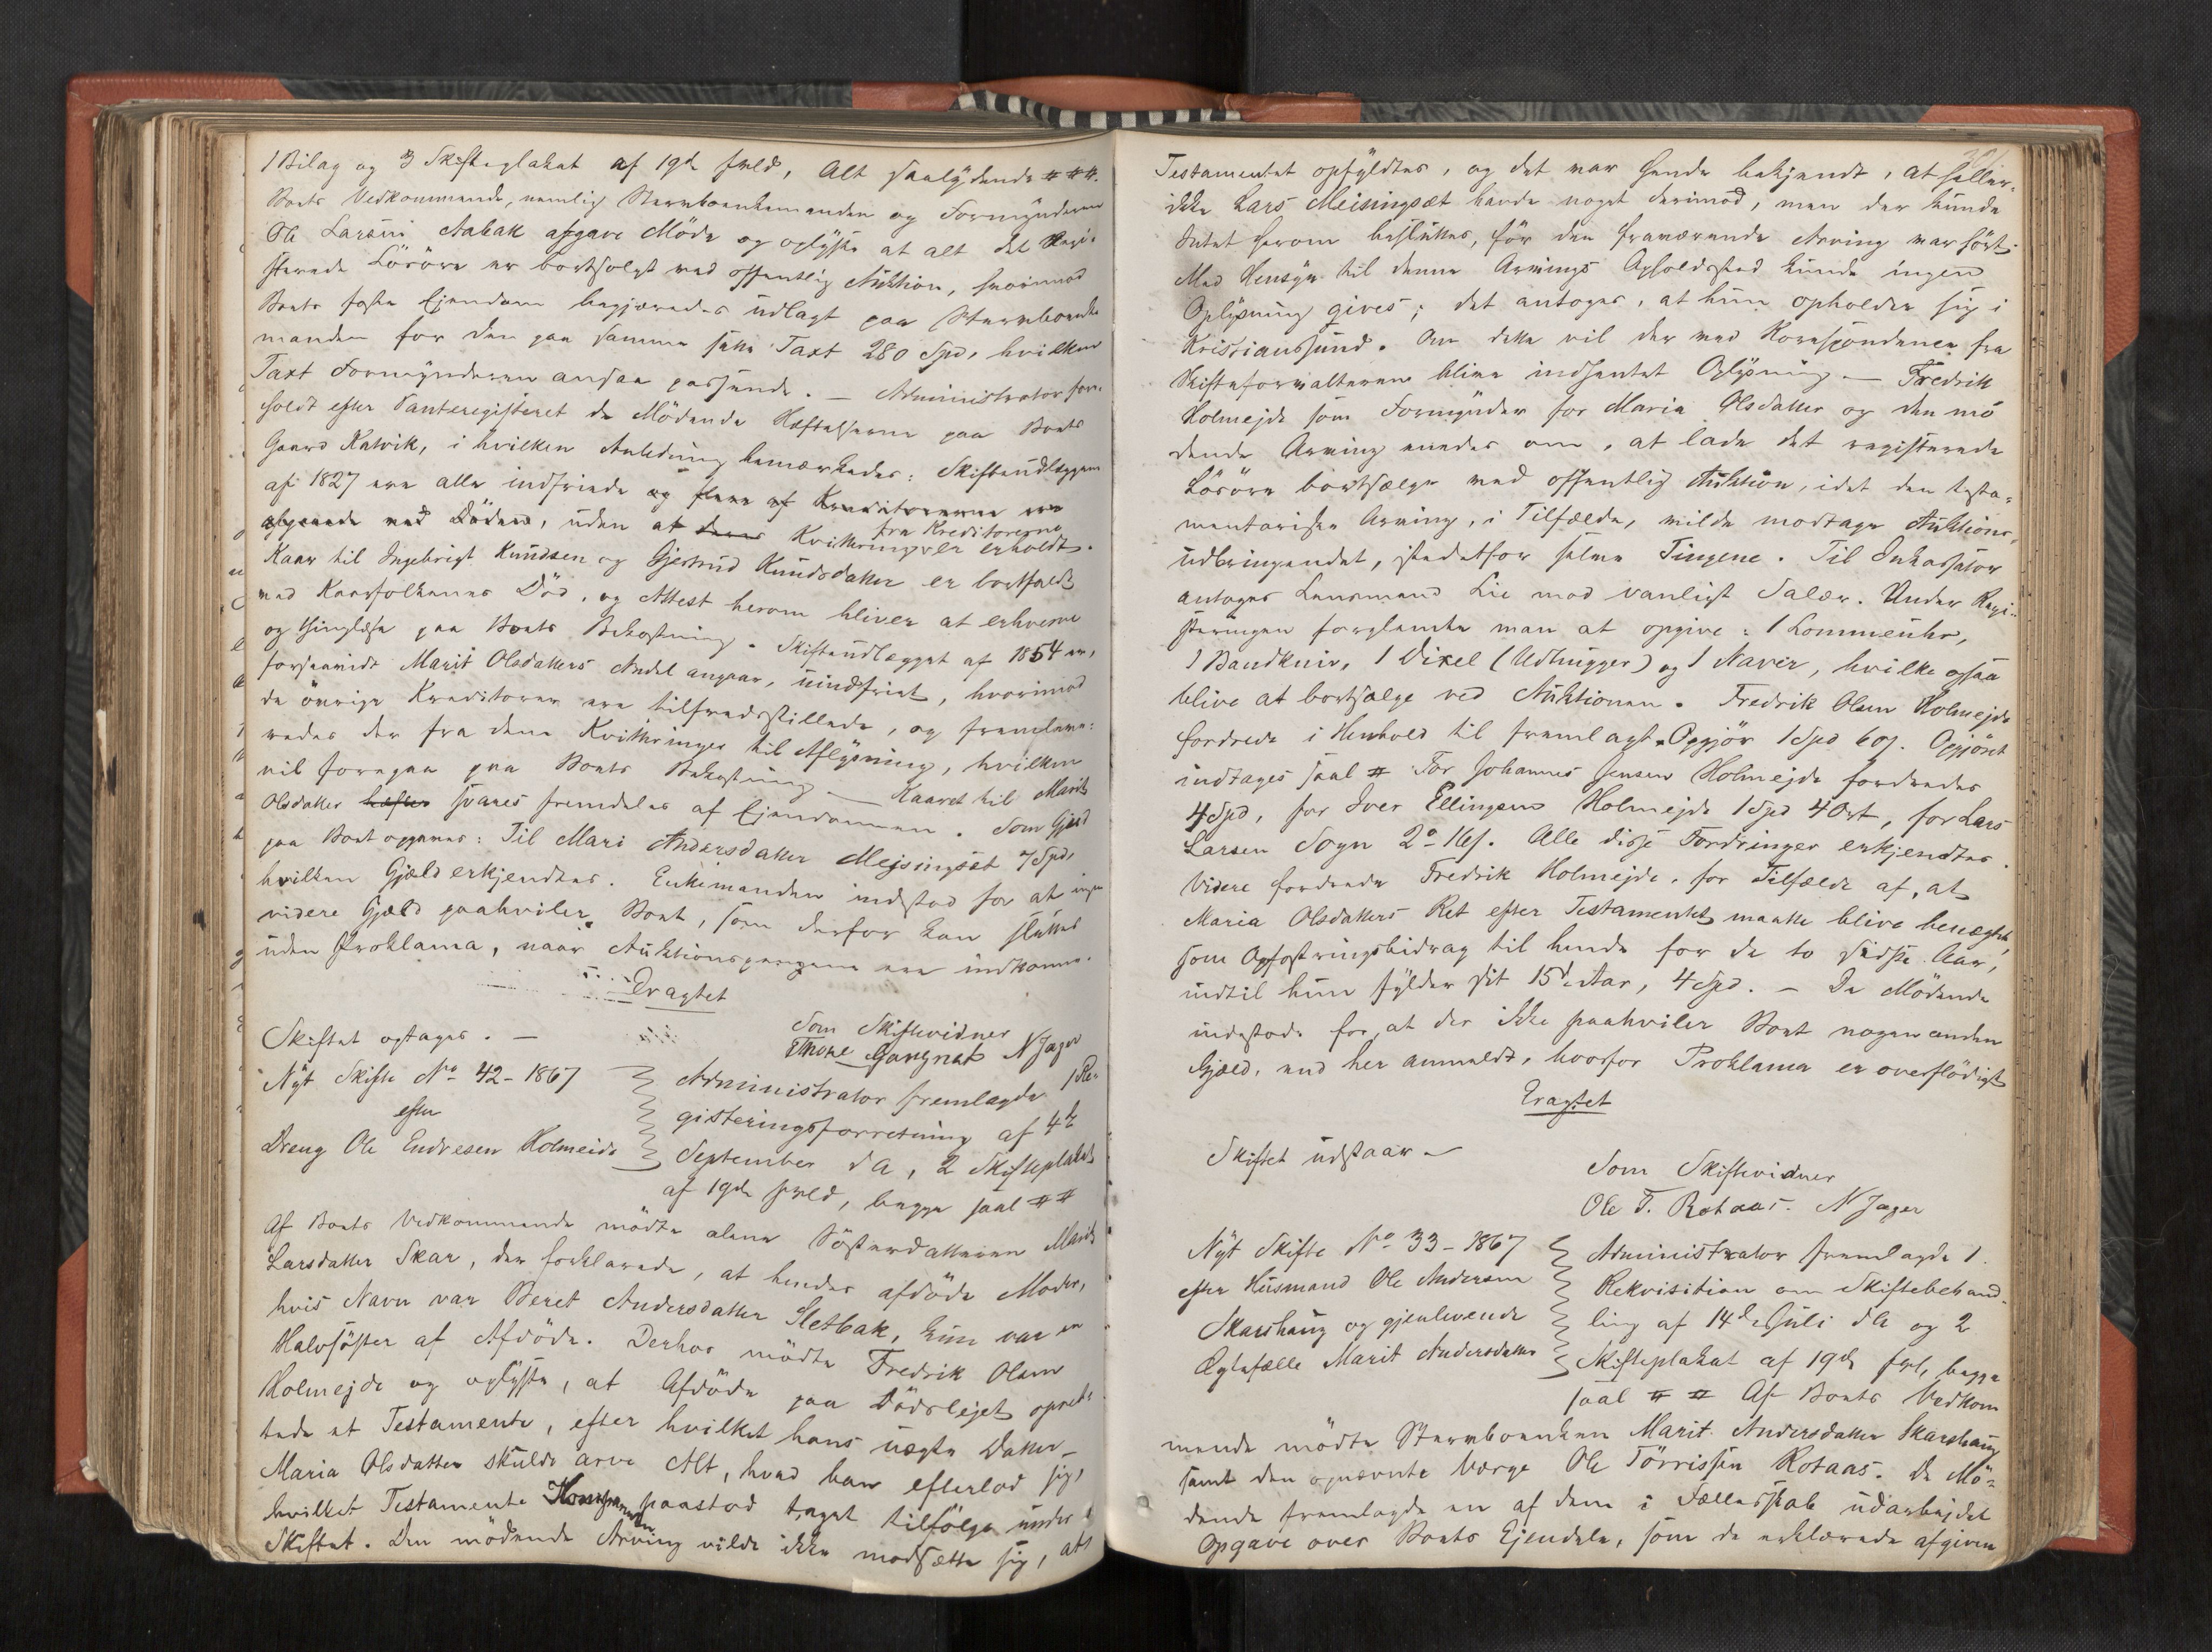 1 Bilag og 3 Skifteplakat af 19de f. Md, Alt saalydende ###.
Boets Vedkommende, nemlig Stervboenkemanden og Formynderen
Ole Larsen Aabak afgave Møde og oplyste at alt det Regi-
strerede Løsøre er bortsolgt ved offentlig Auktion, hvorimod
Boets faste Ejendom begjæredes udlagt paa Stervboenke-
manden for den paa samme satte Taxt 280 Spd, hvilken
Taxt Formynderen ansaa passende. — Administrator fore-
holdt efter Panteregisteret de Mødende Hæftelserne paa Boets
Gaard Kalvik, i hvilken Anledning bemærkedes: Skifteudlæggene
af 1827 ere alle indfriede og flere af Kreditorerne ere
afgaaede ved Døden, uden at deres Kvitteringer er erholdt.
fra Kreditorerne
Kaar til Ingebrigt Knudsen og Gjertrud Knudsdatter er bortfaldt
ved Kaarfolkenes Død, og Attest herom bliver at erhverve
og thinglæse paa Boets Bekostning. Skifteudlægget af 1854 er,
forsaavidt Marit Olsdatters Andel angaar, uindfriet, hvorimod
de øvrige Kreditorer ere tilfredsstillede, og fremleve-
redes der fra dem Kvitteringer til Aflysning, hvilken
vil foregaa paa Boets Bekostning — Kaaret til Marit
Olsdatter hæfter svares fremdeles af Ejendommen. Som Gjæld
paa Boet opgaves: Til Mari Andersdatter Mejsingset 7 Spd,
hvilken Gjæld erkjendtes. Enkemanden indestod for at ingen
videre Gjæld paahviler Boet, som derfor kan sluttes
uden Proklama, naar Auktionspengene ere indkomne.
Eragtet
Skiftet optages. —
Som Skiftevidner
N Jager
Nyt Skifte No 42 - 1867
efter
Dreng Ole Endresen Holmeide
Administrator fremlagde 1 Re-
gisteringsforretning af 4de
September d A, 2 Skifteplakat
af 19de f. Md, begge saal ##
Af Boets Vedkommende mødte alene Søsterdatteren Marit
Larsdatter Skar, der forklarede, at hendes afdøde Moder,
hvis Navn var Beret Andersdatter Sletbak, kun var en
Halvsøster af Afdøde. Derhos mødte Fredrik Olsen
Holmejde og oplyste, at Afdøde paa Dødslejet opret-
tede et Testamente, efter hvilket hans uægte Datter
Maria Olsdatter skulde arve Alt, hvad han efterlod sig,
hvilket Testamente paastod taget tilfølge under
Skiftet. Den mødende Arving vilde ikke modsætte sig, at
Testamentet opfyldtes, og det var hende bekjendt, at heller
ikke Lars Meisingsæt havde noget derimod, men der kunde
Intet herom besluttes, før den fraværende Arving var hørt.
Med Hensyn til denne Arvings Opholdssted kunde ingen
Oplysning gives; det antoges, at hun opholder sig i
Kristianssund. Om dette vil der ved Korrespondence fra
Skifteforvalteren blive indhentet Oplysning — Fredrik
Holmejde som Formynder for Maria Olsdatter og den mø-
dende Arving enedes om, at lade det registrerede
Løsøre bortsælge ved offentlig Auktion, idet den testa-
mentariske Arving, i Tilfælde, vilde modtage Auktions-
udbringendet, istedetfor selve Tingene. Til Inkassator
antoges Lensmand Lie mod vanligt Salær. Under Regi-
streringen forglemte man at opgive: 1 Lommeuhr,
1 Baandkniv, 1 Dixel (Udhugger) og 1 Naver, hvilke ogsaa
blive at bortsælge ved Auktionen. Fredrik Olsen Holmejde
fordrede i Henhold til fremlagt Opgjør 1 Spd 60 s. Opgjøret
indtages saal # For Johannes Jensen Holmejde fordredes
4 Spd, for Iver Ellingsen Holmejde 1 Spd 4 Ort, for Lars
Larsen Sogn 2o - 16 s. Alle disse Fordringer erkjendtes.
Videre fordrede Fredrik Holmejde, for Tilfælde af, at
Maria Olsdatters Ret efter Testamentet maatte blive benægtet
som Opfostringsbidrag til hende for de to sidste Aar,
indtil hun fylder sit 15de Aar, 4 Spd. — De Mødende
indestode for, at der ikke paahviler Boet nogen anden
Gjæld, end her anmeldt, hvorfor Proklama er overflødigt
Eragtet
Skiftet udstaar —
Som Skiftevidner
Ole T. Rotaas. N Jager
Nyt Skifte No 33 - 1867
efter Husmand Ole Andersen
Skarshaug og gjenlevende
Ægtefælle Marit Andersdatter
Administrator fremlagde 1.
Rekvisition om Skiftebehand-
ling af 14de Juli d A og 2
Skifteplakat af 19de f. M, begge
saal # # Af Boets Vedkom
mende mødte Stervboenken Marit Andersdatter Skarshaug
samt den opnævnte Værge Ole Tørrissen Rotaas. De Mø-
dende fremlagde en af dem i Fællesskab udarbejdet
Opgave over Boets Ejendele, som de erklærede afgiven